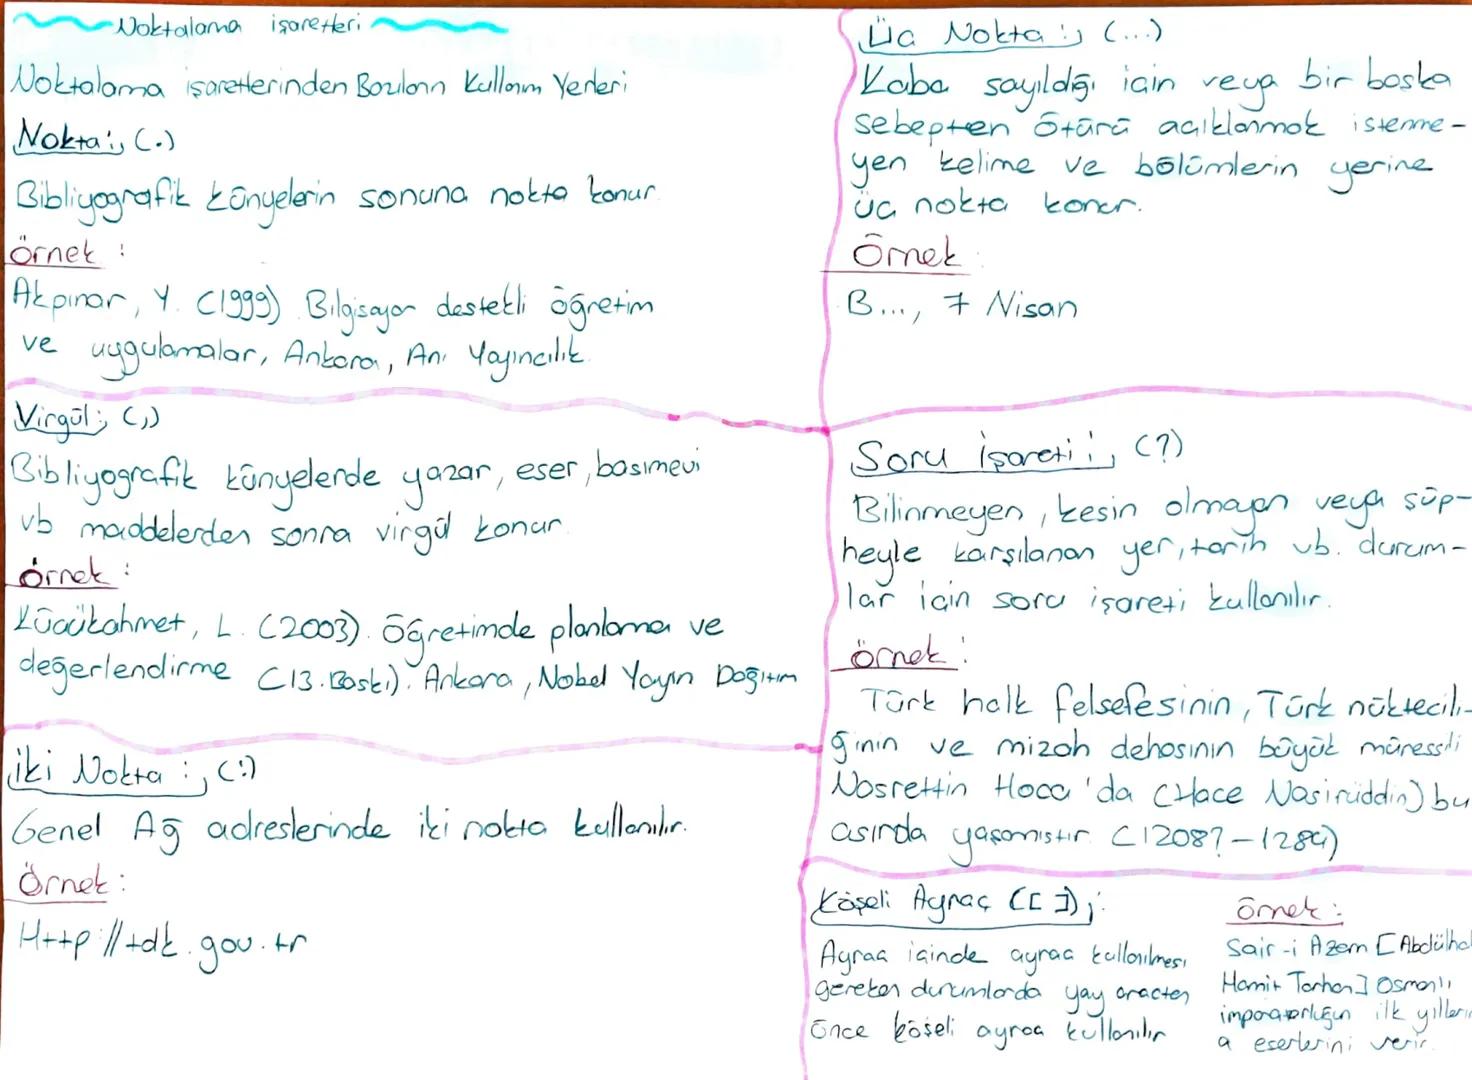 Noktalama işaretleri
Noktalama işaretlerinden Bazıların Kullanım Yerleri
Nokta:; (.)
Bibliyografik künyelerin sonuna nokta konur.
Örnek :
Akpınar, Y. (1999) Bilgisayar destekli öğretim
ve uygulamalar, Ankara, Anı Yayıncılık.
Virgül:; (,)
Bibliyografik künyelerde yazar, eser, basımevi
vb maddelerden sonra virgül konur.
örnek :
Küçükahmet, L. (2003). Öğretimde planlama ve
değerlendirme (13.Baskı). Ankara, Nobel Yayın Dağıtım
İki Nokta :; (:)
Genel Ağ adreslerinde iki nokta kullanılır.
Örnek :
Http://tdk.gov.tr
Üç Nokta :; (...)
Kaba sayıldığı için veya bir başka
sebepten ötürü açıklanmak istenme-
yen kelime ve bölümlerin yerine
üç nokta konur.
Örnek :
B..., 7 Nisan
Soru işareti :; (?)
Bilinmeyen, kesin olmayan veya şüp-
heyle karşılanan yer, tarih vb. durum-
lar için soru işareti kullanılır.
örnek :
Türk halk felsefesinin, Türk nüktecili-
ğinin ve mizah dehasının büyük
Nasrettin Hoca 'da (Hace Nasirüddin) bu
asırda yaşamıştır. (1208?-1284)
Köşeli Ayraç ([ ]);
Ayraç içinde ayraç kullanılması
gereken durumlarda yay ayraçten
önce köşeli ayraç kullanılır
örnek :
Şair-i Azam [Abdülha
Hamit Tarhan] Osmanlı
ilk
eserlerini verir.